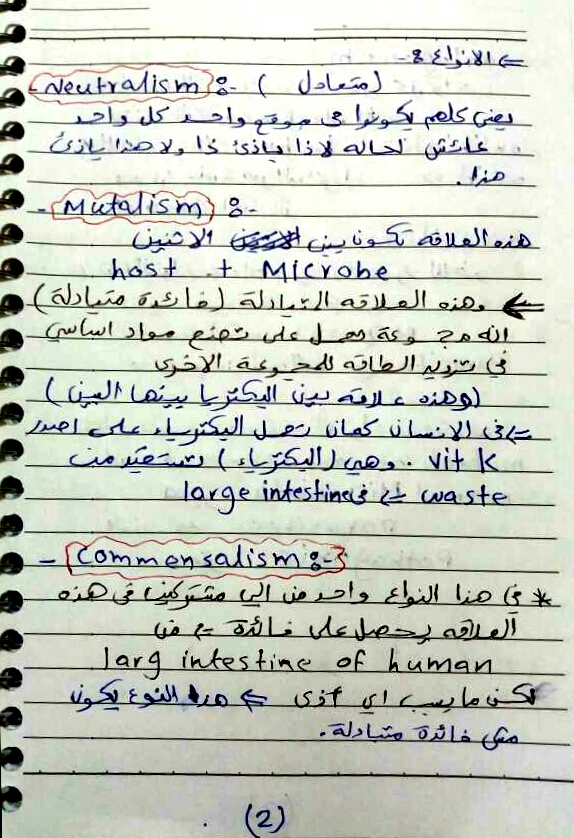 ⇐ الانواع :-
- Neutralism :- ( متعادل )
يعني كلهم يكونوا في موقع واحد كل واحد
عائش لحاله لا ذا يأذئ ذا ولا هذا يأذئ
هذا.
- Mutalism :-
هذه العلاقه تكون بين الاثنين
host + Microbe
← وهذه العلاقه التبادلة (فائدة متبادلة)
انه مجموعة تعمل على تصنع مواد اساسي
في تزويد الطاقه للمجموعة الاخرى
(وهذه علاقه بين البكتريا بينها البين)
⇐ في الانسان كمان تعمل البكترياء على اصدر
vit k . وهي (البكترياء) تستفيد من
waste ⇐ في large intestine
- Commensalism :-
* في هذا النواع واحد من الي مشتركين في هذه
العلاقه يحصل على فائدة ⇐ من
larg intestine of human
لكن ما يسبب اي أذى ⇐ هذا النوع يكون
مش فائدة متبادلة.
(2)